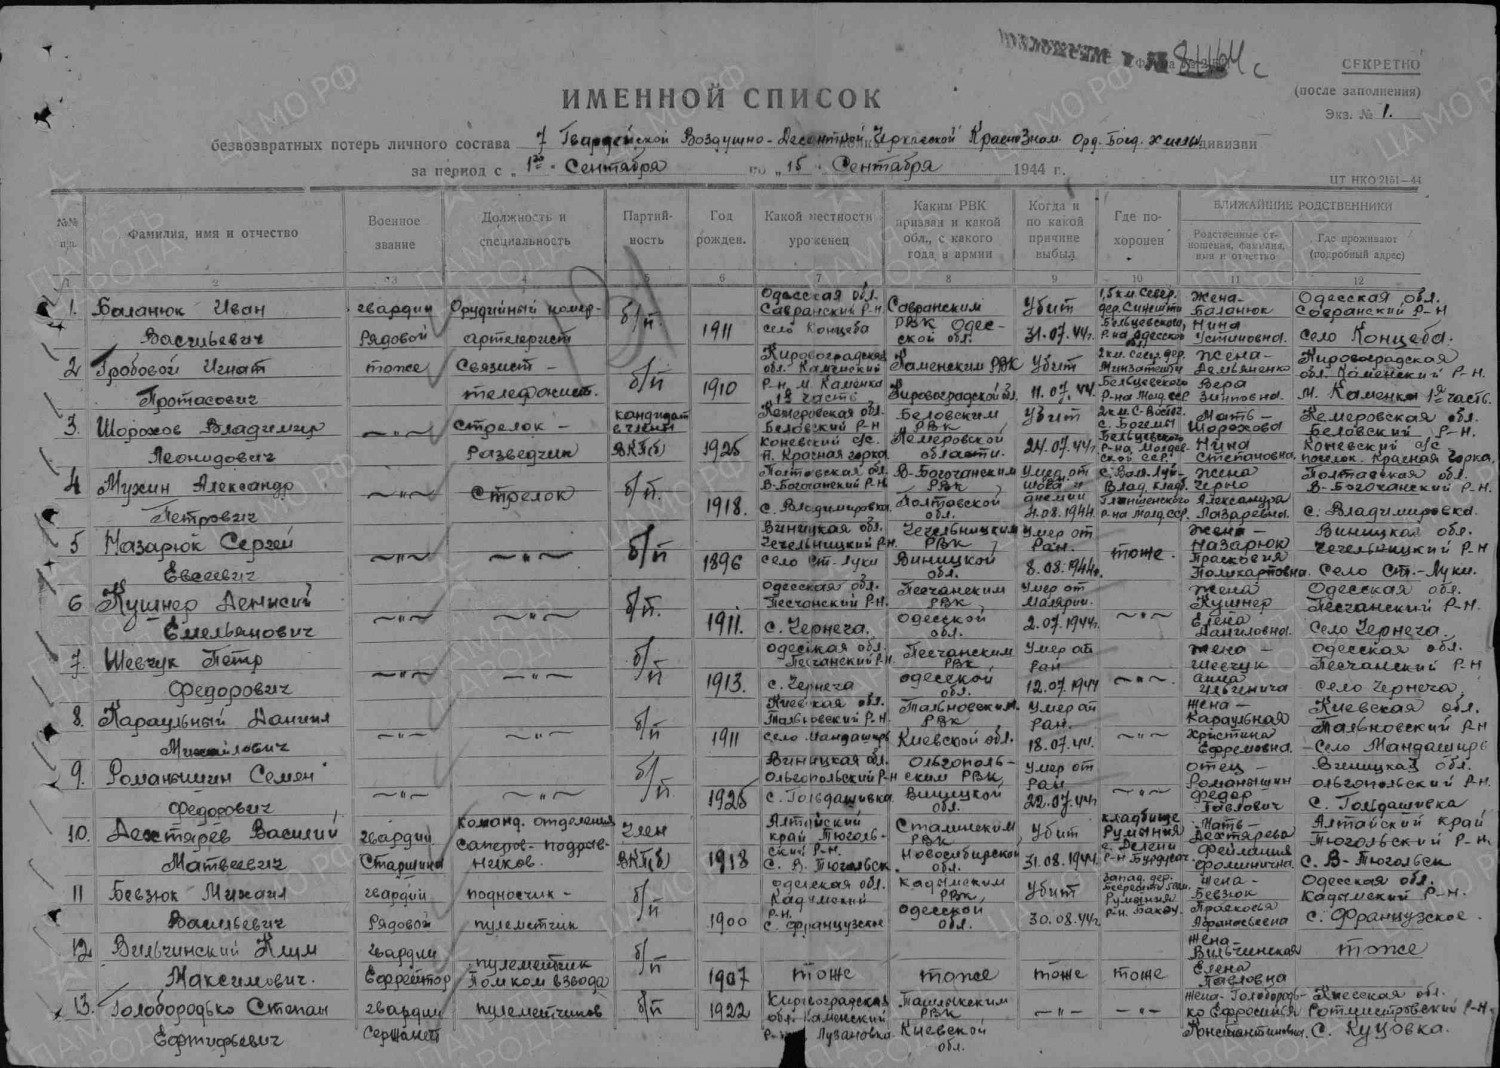 СЕКРЕТНО
(после заполнения)
Экз. № 1.
ИМЕННОЙ СПИСОК
безвозвратных потерь личного состава 7 Гвардейской Воздушно-Десантной Черкасской Краснознам. Орд. Богд. Хмельн. дивизии
за период с „ 1го “ Сентября по „ 15 “ Сентября 1944 г.
ЦТ НКО 2151—44
№№ п/п.
Фамилия, имя и отчество
Военное звание
Должность и специальность
Партий-ность
Год рожден.
Какой местности уроженец
Каким РВК призван и какой обл., с какого года в армии
Когда и по какой причине выбыл
Где по-хоронен
БЛИЖАЙШИЕ РОДСТВЕННИКИ
Родственные от-ношения, фамилия, имя и отчество
Где проживают (подробный адрес)
1 2 3 4 5 6 7 8 9 10 11 12
1. Баланюк Иван Васильевич
гвардии Рядовой
Орудийный номер- артелерист
б/п.
1911
Одесская обл. Савранский Р-Н село Концеба
Савранским РВК Одес-ской обл.
Убит 31.07.44г.
1,5 км. Север. дер. Синешти Бельцевского, Р-на
Жена- Баланюк Нина Устиновна.
Одесская обл. Савранский Р-Н село Концеба.
2 Гробовой Игнат Протасович
тоже
Связист - телефонист.
б/п
1910
Кировоградская обл. Каменский Р-Н. М. Каменка 1я часть
Каменским РВК Кировоградской обл.
Убит 11.07.44
2 км. Север. дер. Бельцевского Р-на Молд. ССР
Жена- Демьяненко Вера Зиновна.
Кировоградская обл. Каменский Р-Н. М. Каменка 1я часть.
3. Шорохов Владимир Леонидович
—„—
Стрелок - Разведчик
кандидат в члены ВКП(б)
1925
Кемеровская обл. Беловский Р-Н Коневский с/с п. Красная горка
Беловским РВК Кемеровской области.
Убит 24.07.44г.
2 км. С-Восточ. с. Богемы Бельцевского Р-на Молдав-ской ССР.
Мать- Шорохова Нина Степановна.
Кемеровская обл. Беловский Р-Н. Коневский с/с поселок. Красная горка.
4 Мухин Александр Петрович
—„—
Стрелок
б/п.
1918.
Полтавская обл. В-Богачанский Р-Н. с. Владимировка
В-Богочанским РВК Полтавской обл.
Умер от шока и анемии 4.08.1944
Р-на Молд ССР.
жена Черно Александра Лазаревна.
Полтавская обл. В-Богочанский Р-Н. с. Владимировка.
5 Назарюк Сергей Евсеевич
—„—
—„—
б/п
1896
Виницкая обл. Чечельницкий Р-Н. село Ст-Луки
Чечельницким РВК Виницкой обл.
Умер от Ран. 8.08.1944г.
тоже.
жена - Назарюк Прасковия Поликарповна.
Виницкая обл. Чечельницкий Р-Н Село Ст.-Луки.
6 Кушнер Денисий Емельянович
—„—
—„—
б/п.
1911.
Одесская обл. Песчанский Р-Н. с. Чернеча.
Песчанским РВК Одесской обл.
Умер от Малярии. 2.07.1944г.
—„—
Жена Кушнер Елена Даниловна.
Одесская обл. Песчанский Р-Н. Село Чернеча.
7. Шевчук Петр Федорович
—„—
—„—
б/п
1913.
Одесская обл. Песчанский Р-Н. с. Чернеча
Песчанским РВК Одесской обл.
Умер от Ран 12.07.1944
—„—
Жена - Шевчук Анна Ильинична
Одесская обл. Песчанский Р-Н Село Чернеча,
8. Караульный Даниил Михайлович
—„—
—„—
б/п
1911
Киевская обл. Тальновский Р-Н. село Мандашир
Тальновским. РВК Киевской обл.
Умер от Ран. 18.07.44.
—„—
Жена - Караульная Христина Ефремовна.
Киевская обл. Тальновский Р-Н -Село Мандашир
9. Романышин Семен Федорович
—„—
—„—
б/п.
1925
Виницкая обл. Ольгопольский Р-Н с. Гольдашивка
Ольгополь-ским РВК Виницкой обл.
Умер от Ран 22.07.44г
—„—
отец - Романышин Федор Павлович
Виницкая обл. Ольгопольский Р-Н. с. Гольдашивка
10. Дехтярев Василий Матвеевич
гвардии Старшина
команд. отделения саперов- подрыв-ников.
член ВКП(б)
1918
Алтайский край Тюголь-ский Р-Н. С. В. Тюгольск.
Сталинским РВК Новосибирской обл.
Убит 31.08.1944
кладбище Румыния с. Делени
Мать- Дехтярева
Алтайский край Тюгольский Р-Н. с. В-Тюгольск
11 Бевзюк Михаил Васильевич
гвардии Рядовой
подносчик - пулеметчик
б/п
1900
Одесская обл. Кадымский Р-Н. с. Французское
Кадымским РВК, Одесской обл.
Убит 30.08.44г.
Запад. дер. Румыния Р-Н. Бакэу.
Жена - Бевзюк Прасковья Афанасьевна
Одесская обл. Кадымский Р-Н. с. Французское.
12. Вильчинский Клим Максимович.
гвардии Ефрейтор
пулеметчик Пом ком взвода
б/п
1907
тоже
тоже
тоже
тоже
Жена Вильчинская Елена Павловна
тоже
13. Голобородько Степан
гвардии Сержант
пулеметчиков
б/п
1922
Кировоградская обл. Каменский Р-Н Лузановка
Ташлыкским РВК Киевской обл.
—„—
—„—
Жена- Голобородь-ко Ефросинья Константиновна.
Киевская обл. Ротмистровский Р-Н. С. Куцовка.